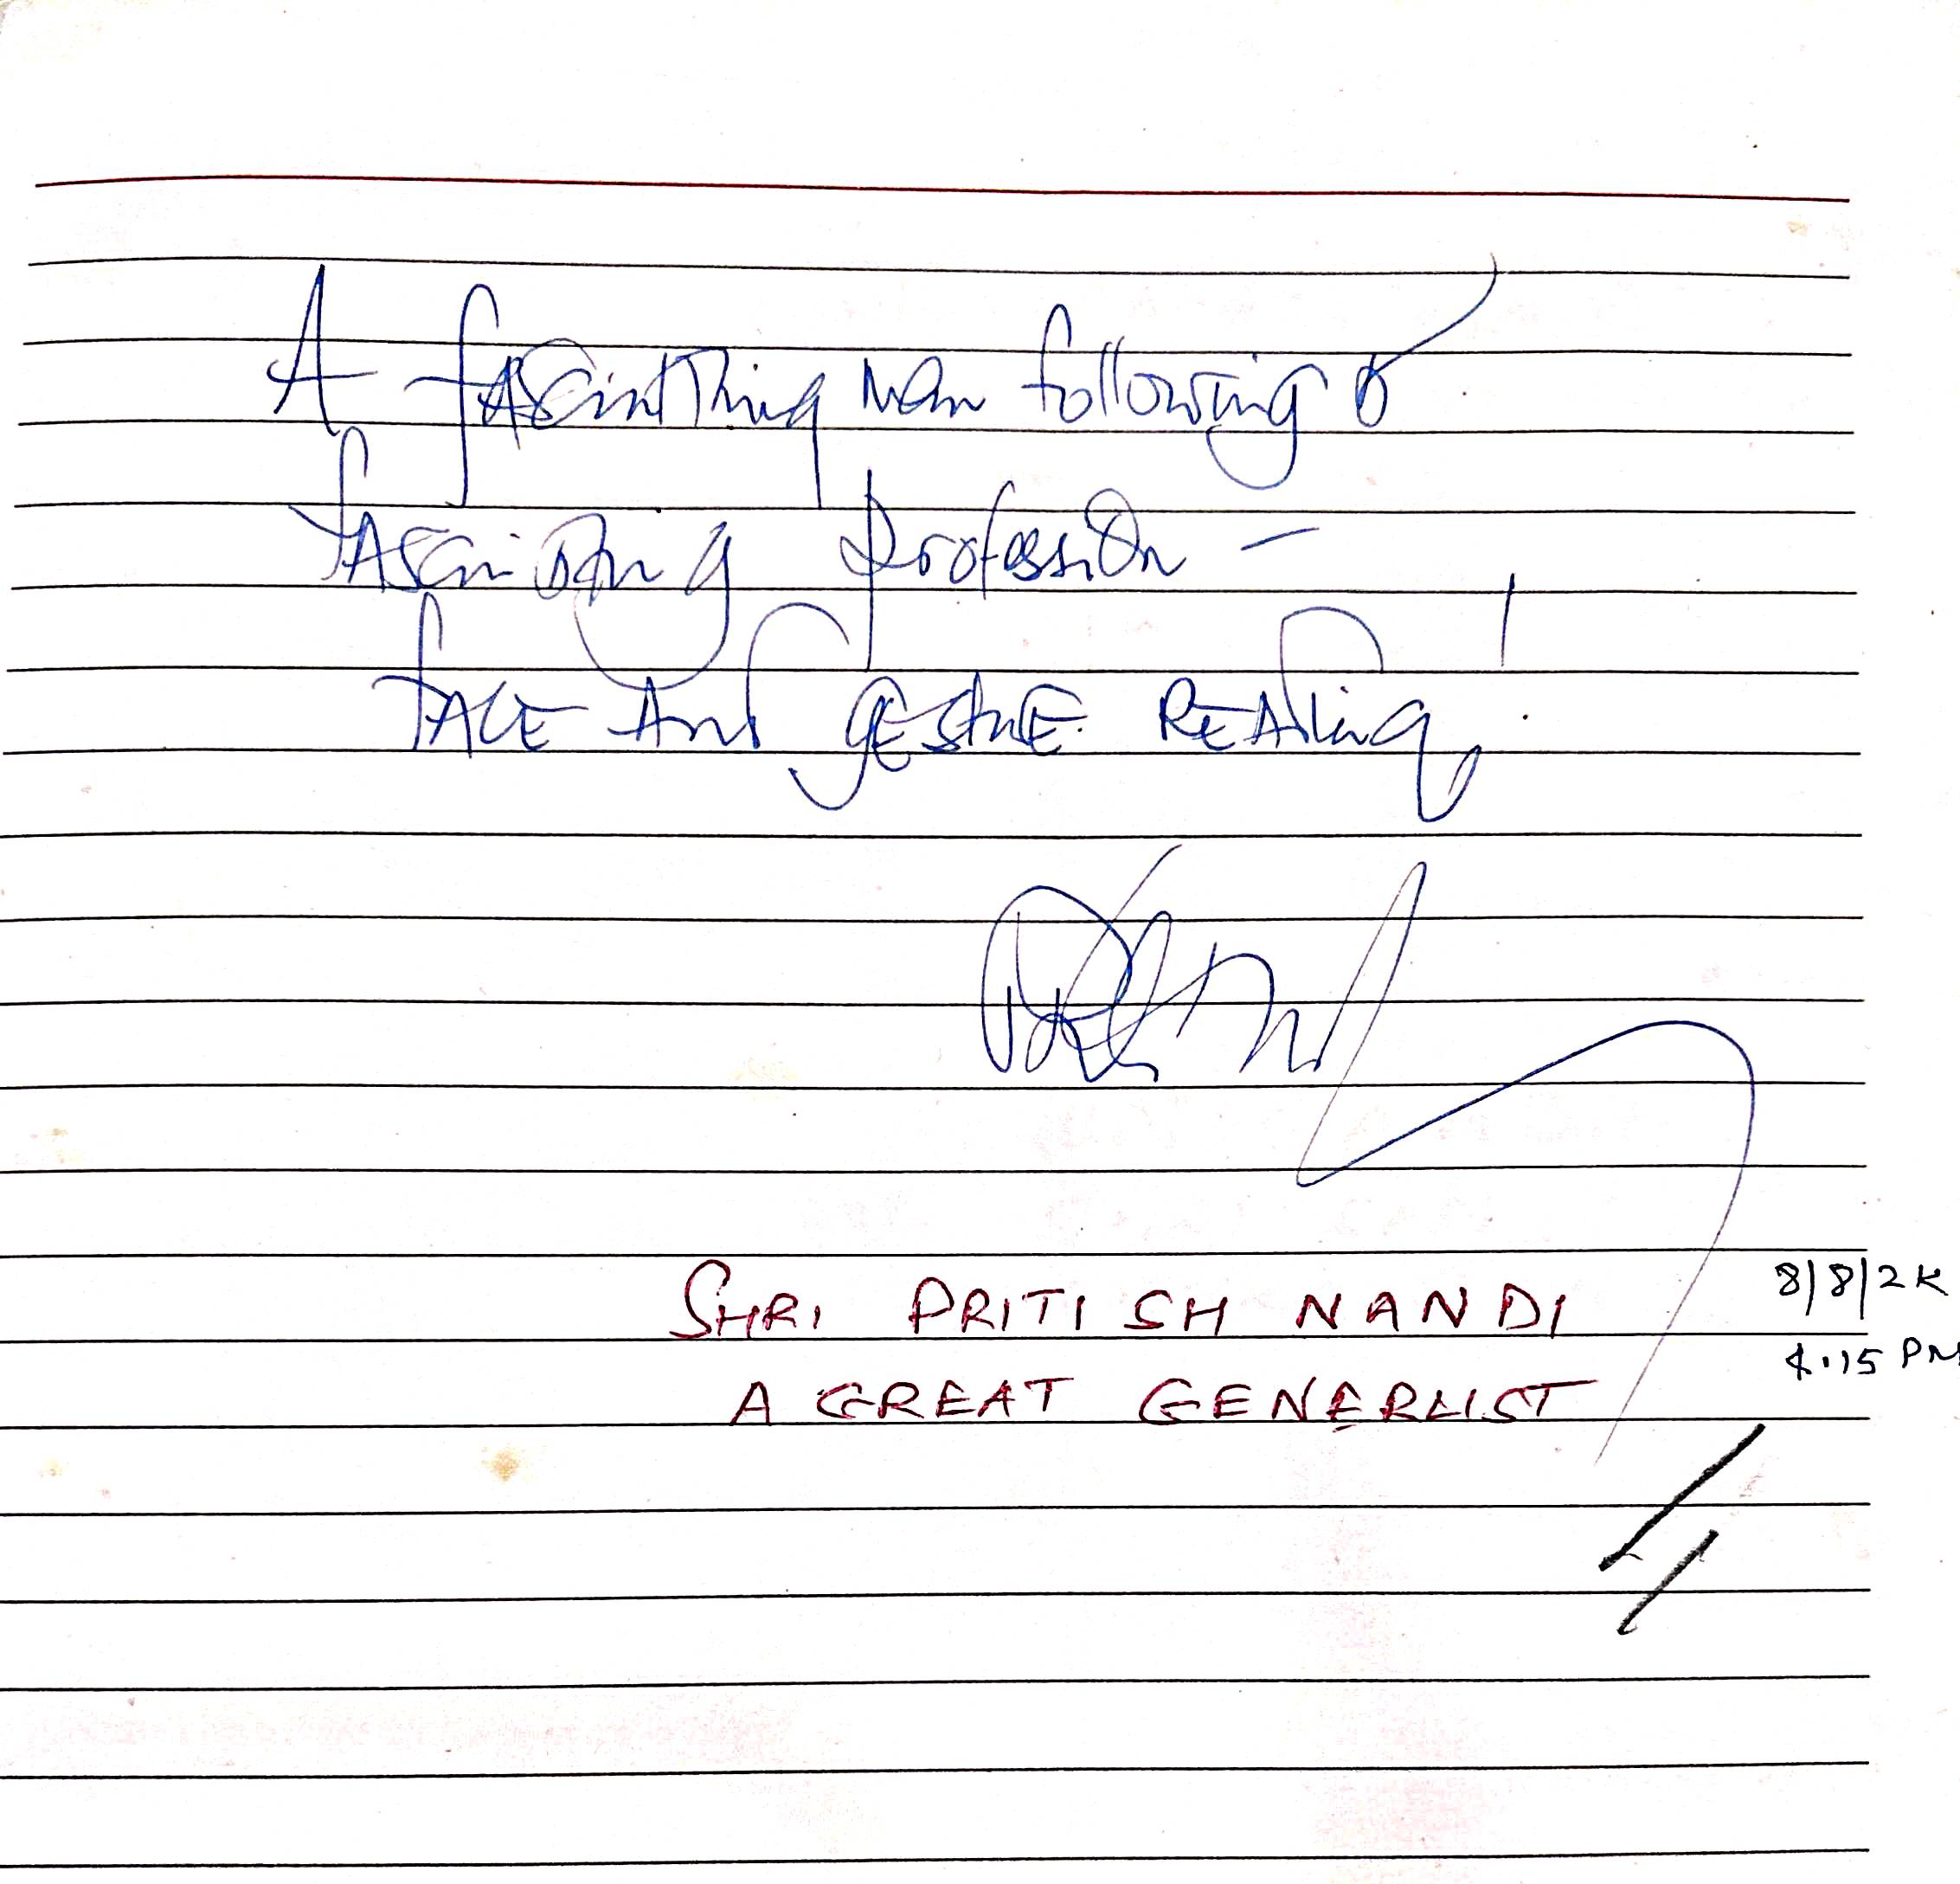 A fascinating man following a
fascinating profession –
face and gesture reading!
SHRI PRITISH NANDI
8/8/2K
4.15 PM
A GREAT GENERLIST